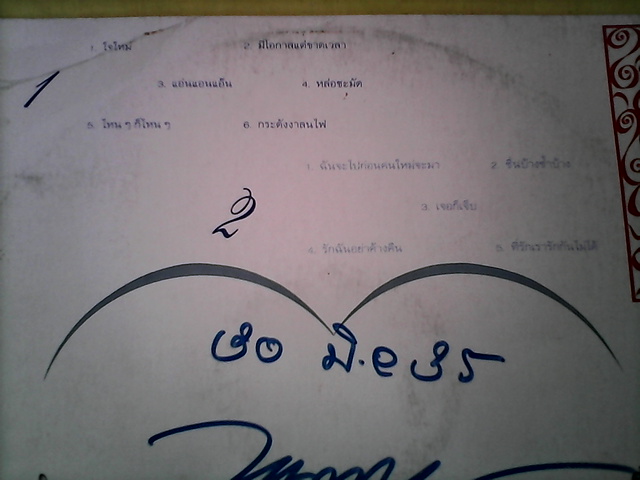 1. ใจโหม่ 2. มีโอกาสแต่ขาดเวลา
1
3. แอ่นแอนแอ๊น 4. หล่อชะมัด
5. โทน ๆ ก็โทน ๆ 6. กระดังงาลนไฟ
1. ฉันจะไปก่อนคนใหม่จะมา 2. ชื่นบ้างช้ำบ้าง
2
3. เจอก็เจ็บ
4. รักฉันอย่าค้างคืน 5. พี่รักเรารักกันไม่ได้
๓๐ มี.ค ๓๕